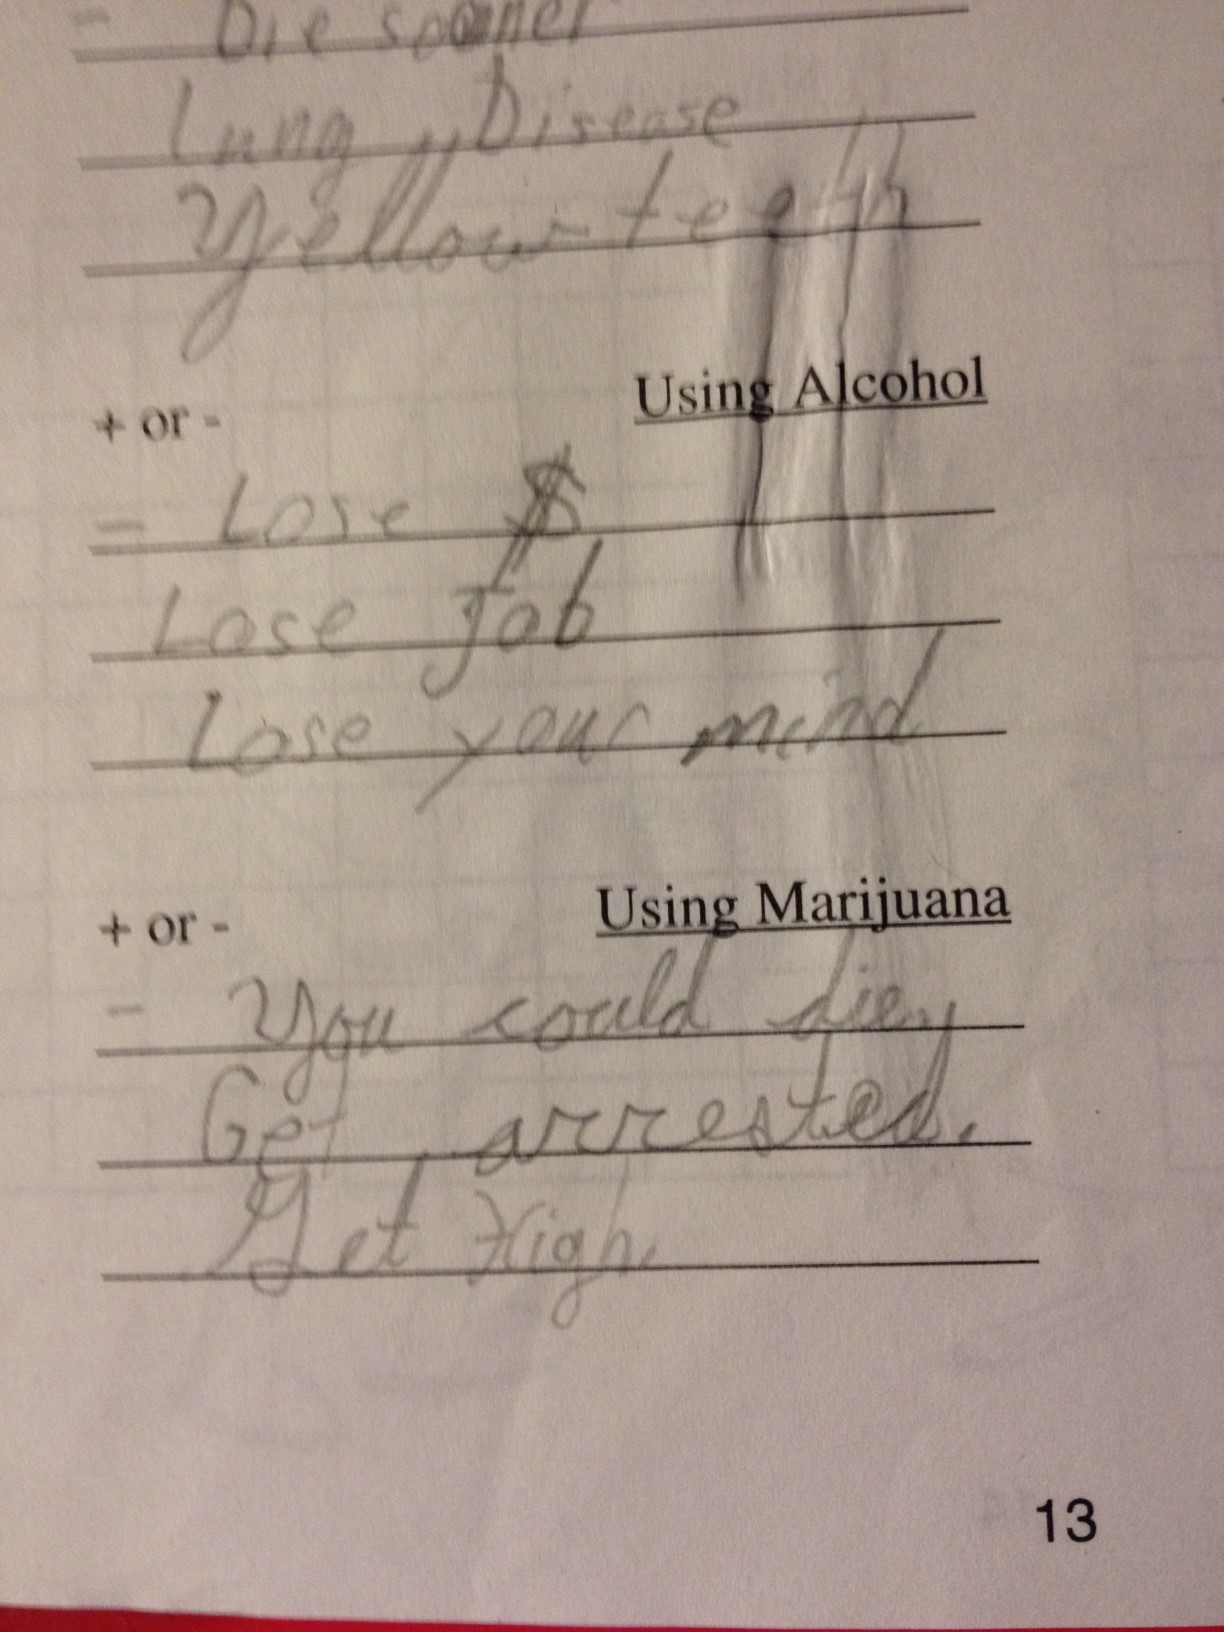 - Die sooner
Lung Disease
Yellow teeth
+ or - Using Alcohol
- Lose $
Lose Job
Lose your mind
+ or - Using Marijuana
- You could die,
Get arrested.
Get High.
13